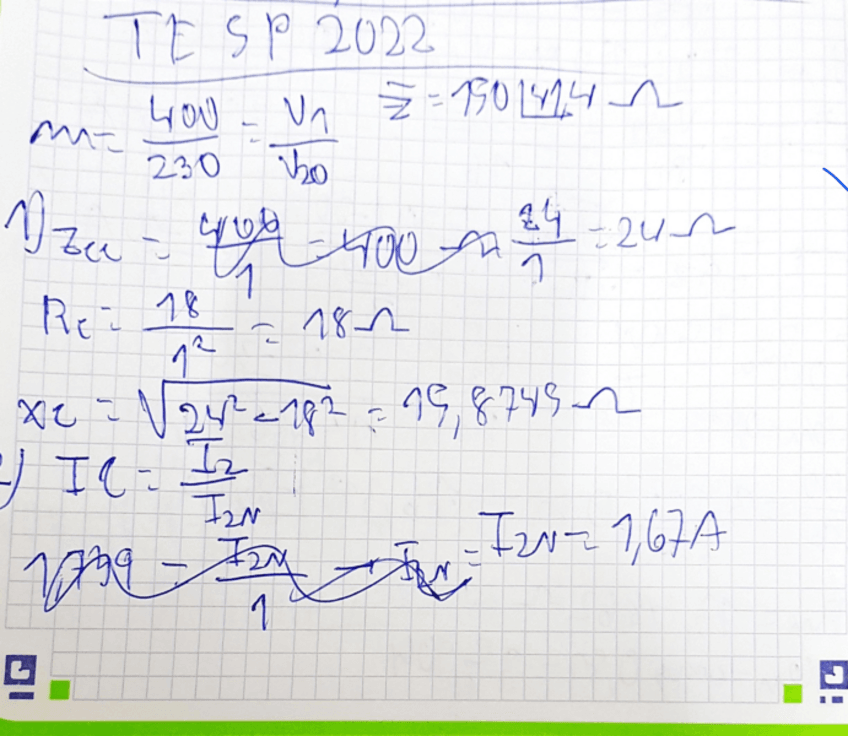 TE SP 2022
m = 400/230 = V1/V20   Z = 150∠41,4 Ω
1) Zcc = 400/1 = 400 Ω 24/1 = 24 Ω
Rc = 18/1² = 18 Ω
Xc = √24² - 18² = 15,8745 Ω
) IC = I2/I2N
1,739 = I2N/1 I2N = I2N = 1,67A